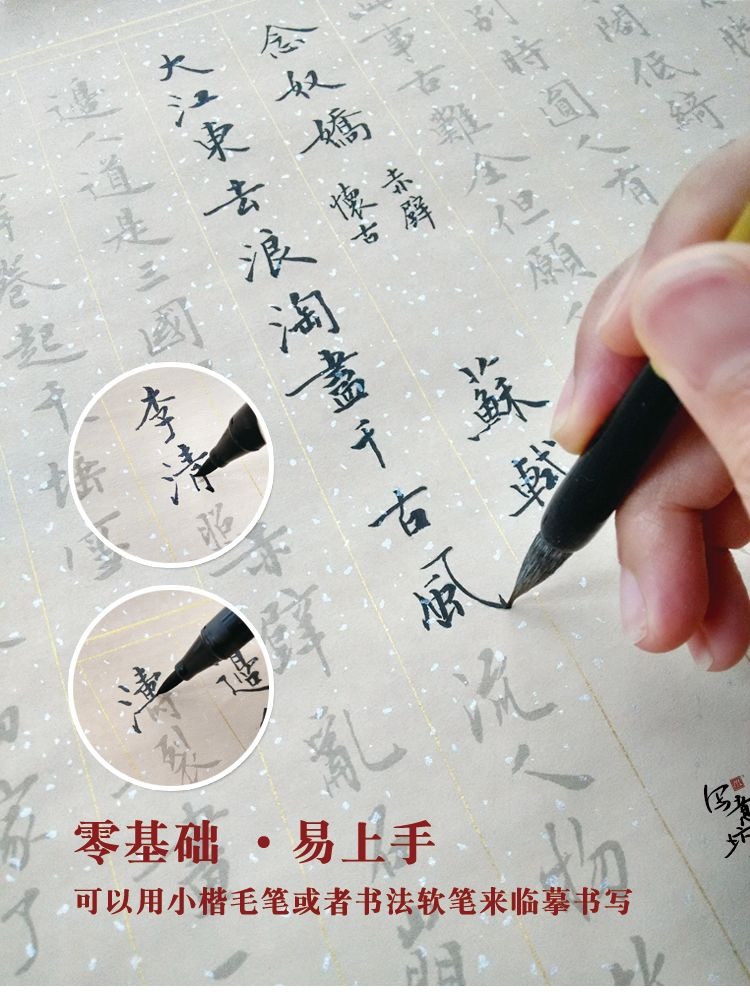 閣低綺
別時圓人有
此事古難全但願人
念奴嬌 赤壁
懷古
蘇軾
大江東去浪淘盡千古風流人物
邊人道是三國
赤壁亂
卷起千堆雪
畫一
了
李清
照
濤裂
邊
写意坊
零基础·易上手
可以用小楷毛笔或者书法软笔来临摹书写